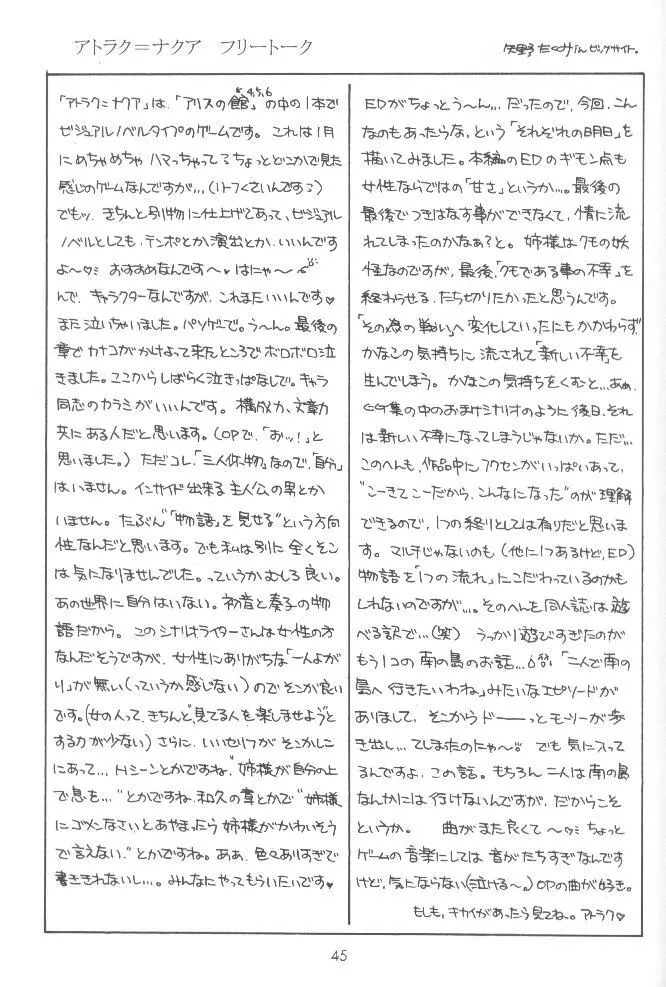 アトラク＝ナクア　フリートーク
矢野たくみinビッグサイト。
「アトラク＝ナクア」は、「アリスの館4,5,6」の中の1本で
ビジュアルノベルタイプのゲームです。これは1月
にめちゃめちゃハマっちゃってるちょっとどこかで見た
感じのゲームなんですが…（リトフくさいんですう）
でもッ、きちんと別物に仕上げてあって、ビジュアル
ノベルとしても、テンポとか演出とか、いいんです
よ〜 おすすめなんです〜♥はにゃ〜
んで、キャラクターなんですが、これまたいいんです♥
また泣いちゃいました。パソゲで。う〜ん。最後の
章でカナコがかけよって来たところでボロボロ泣
きました。ここからしばらく泣きっぱなしで。キャラ
同志のカラミがいいんです。構成力、文章力
共にある人だと思います。（OPで、「おッ！」と
思いました。）ただコレ、「三人体物」なので、「自分」
はいません。インサイド出来る主人公の男とか
いません。たぶん“「物語」を見せる”という方向
性なんだと思います。でも私は別に全くそこ
は気になりませんでした。っていうかむしろ良い。
あの世界に自分はいない。初音と奏子の物
語だから。このシナリオライターさんは女性の方
なんだそうですが、女性にありがちな「一人よが
り」が無い（っていうか感じない）のでそこが良い
です。（女の人って、きちんと“見てる人を楽しませよう”と
する力が少ない）さらに、いいセリフがそこかしこ
にあって…Hシーンとかですね。“姉様が自分の上
で息を…”とかですね、和久の章とかで“姉様
にゴメンなさいとあやまったら姉様がかわいそう
で言えない。”とかですね。ああ、色々ありすぎで
書ききれないし…。みんなにやってもらいたいです♥
EDがちょっとう〜ん…だったので、今回、こん
なのもあったらな、という「それぞれの明日」を
描いてみました。本編のEDのギモン点も
女性ならではの「甘さ」というか…。最後の
最後でつきはなす事ができなくて、情に流
れてしまったのかなぁ？と。姉様はクモの妖
怪なのですが、最後、「クモである事の不幸」を
終わらせる、たち切りたかったと思うんです。
「その為の戦い」へ変化していったにもかかわらず、
かなこの気持ちに流されて「新しい不幸」を
生んでしまう。かなこの気持ちをくむと…あぁ、
CG集の中のおまけシナリオのように後日、それ
は新しい不幸になってしまうじゃないか。ただ…
このへんも、作品中にフクセンがいっぱいあって、
“こーきてこーだから、こんなになった”のが理解
できるので、1つの終りとしては有りだと思いま
す。マルチじゃないのも（他に1つあるけど、ED）
物語を「1つの流れ」にこだわっているのかも
しれないのですが…。そのへんを同人誌は遊
べる訳で…（笑）うっかり遊びすぎたのが
もう1コの南の島のお話…「二人で南の
島へ行きたいわね」みたいなエピソードが
ありまして、そこからドーーーっとモーリーが歩
き出し…てしまったのにゃ〜 でも気に入って
るんですよ、この話。もちろん二人は南の島
なんかには行けないんですが、だからこそ
というか。　曲がまた良くて〜 ちょっと
ゲームの音楽にしては音がたちすぎなんです
けど、気にならない（泣ける〜。）OPの曲が好き。
もしも、キカイがあったら見てね。アトラク♥
45